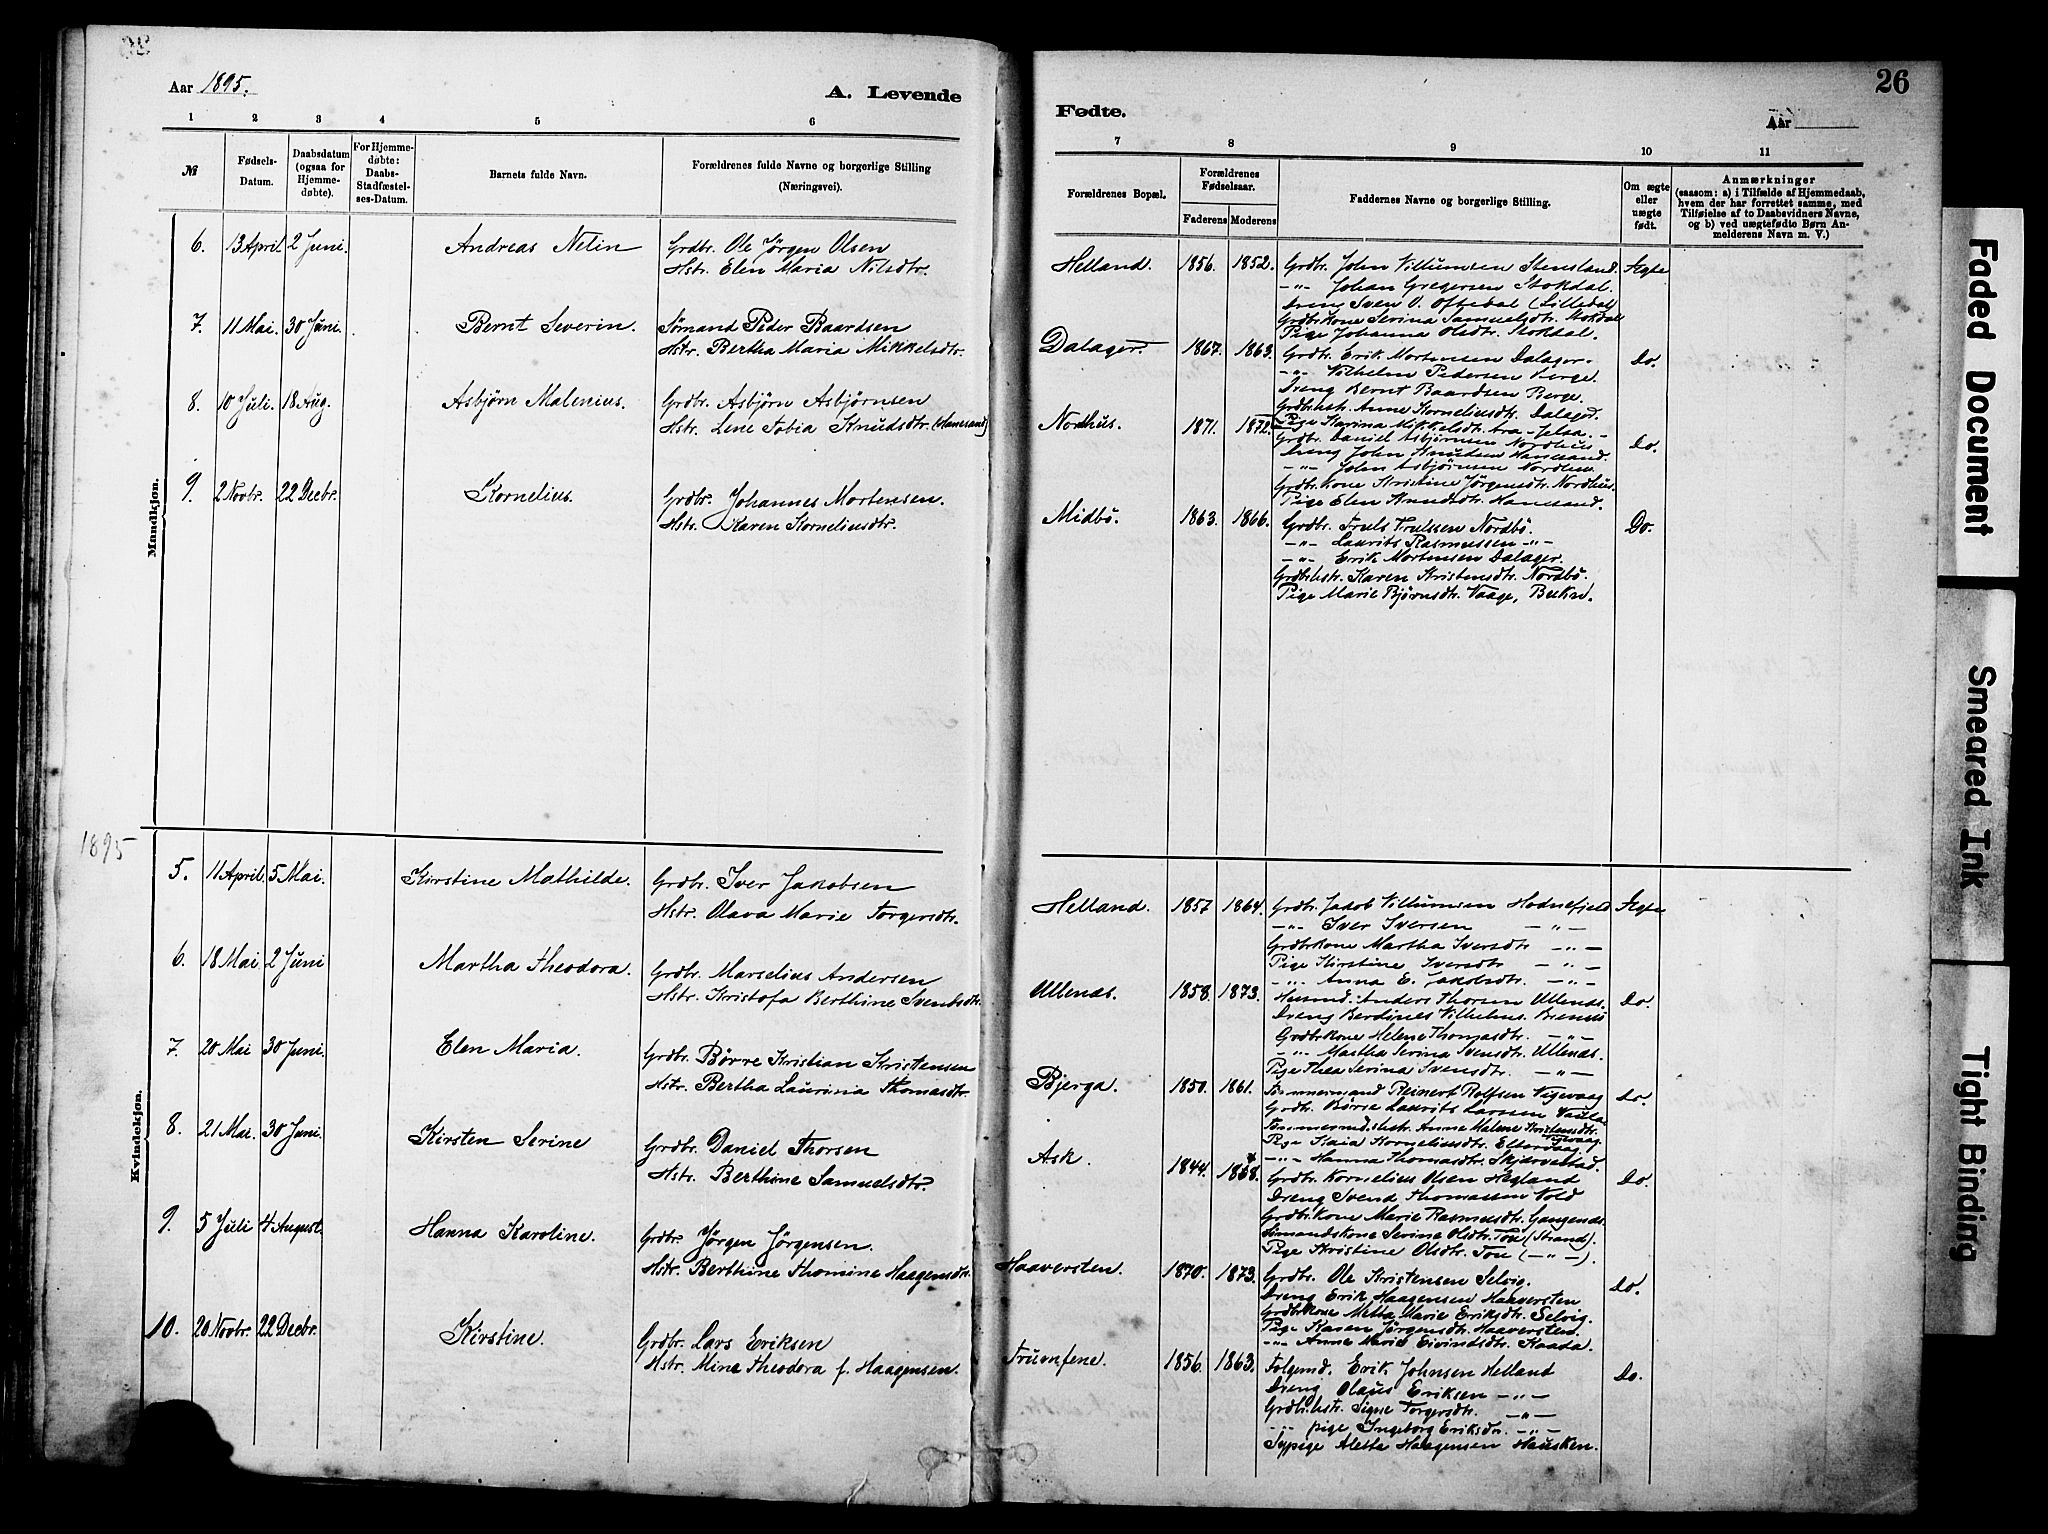 Aar 1895.
A. Levende
Fødte.
Aar
26
1 2 3 4 5 6 7 8 9 10 11
№
Fødsels-
Datum.
Daabsdatum
(ogsaa for
Hjemme-
døbte).
For Hjemme-
døbte:
Daabs-
Stadfæstel-
ses-Datum.
Barnets fulde Navn.
Forældrenes fulde Navne og borgerlige Stilling
(Næringsvei).
Forældrenes Bopæl.
Forældrenes
Fødselsaar.
Faderens Moderens
Faddernes Navne og borgerlige Stilling.
Om ægte
eller
uægte
født.
Anmærkninger
(saasom: a) i Tilfælde af Hjemmedaab,
hvem der har forrettet samme, med
Tilføielse af to Daabsvidners Navne,
og b) ved uægtefødte Børn An-
melderens Navn m. V.)
Mandkjøn.
6. 13 April. 2 Juni. Andreas Nelin Grdbr. Ole Jørgen Olsen
Hstr. Elen Maria Nilsdtr.
Helland. 1856. 1852. Grdbr. John Villumsen Stensland. Ægte
-"- Johan Gregersen Stokdal.
Dreng Sven O. Oftedal (Lilledal)
Grdbrkone Serina Samuelsdtr. Stokdal
Pige Johanna Olsdtr. Stokdal.
7. 11 Mai. 30 Juni. Bernt Severin. Sømand Peder Baardsen
Hstr. Bertha Maria Mikkelsdtr.
Dalager. 1867. 1863. Grdbr. Erik Mortensen Dalager. Do.
-"- Vilhelm Pedersen Berge.
Dreng Bernt Baardsen Berge.
Grdbrhstr. Anne Korneliusdtr. Dalager.
Pige Karina Mikkelsdtr. Jelsa.
8. 10 Juli. 18 Aug. Asbjørn Malenius. Grdbr. Asbjørn Asbjørnsen
Hstr. Lene Tobia Knudsdtr. (Hanesand)
Nordhus. 1871. 1872. Grdbr. Daniel Asbjørnsen Nordhus Do.
Dreng John Knudsen Hanesand.
-"- John Asbjørnsen Nordhus.
Grdbrkone Kristine Jørgensdtr. Nordhus.
Pige Elen Knudsdtr. Hanesand.
9. 2 Novbr. 22 Decbr. Kornelius. Grdbr. Johannes Mortensen.
Hstr. Karen Korneliusdtr.
Midbö. 1863. 1866. Grdbr. Truls Trulssen Nordbö. Do.
-"- Laurits Rasmussen -"-
-"- Erik Mortensen Dalager.
Grdbrhstr. Karen Kristensdtr. Nordbö.
Pige Marie Bjørnsdtr. Vaage, Bukn.
1895
Kvindekjøn.
5. 11 April. 5 Mai. Kirstine Mathilde. Grdbr. Iver Jakobsen
Hstr. Olava Marie Torgersdtr.
Helland. 1857 1864. Grdbr. Jakob Villumsen Hodnefjeld Ægte
-"- Iver Iversen -"-
Grdbrkone Martha Iversdtr -"-
Pige Kirstine Iversdtr -"-
-"- Anna E. Jakobsdtr. -"-
6. 18 Mai 2 Juni Martha Theodora. Grdbr. Marselius Andersen
Hstr. Kristofa Berthine Svendsdtr.
Ullenæs. 1858. 1873. Husmd. Anders Thorsen Ullenæs. Do.
Dreng Berdines Vilhelms.
Grdbrkone Helene Thomasdtr. -"-
-"- Martha Serina Svensdtr. Ullenæs.
Pige Thea Serina Svensdtr. -"-
7. 20 Mai 30 Juni. Elen Maria. Grdbr. Börre Kristian Kristensen
Hstr. Bertha Laurina Thomasdtr.
Bjerga. 1850. 1861. Tømmermand Reinert Rolfsen Vigevaag Do.
Grdbr. Börre Laurits Larssen
Tømmermd.hstr. Anne Malene Kristensdtr. Vigevaag
Pige Kaia Korneliusdtr. Eltervaag
-"- Hanna Thomasdtr. Skjærvestad.
8. 21 Mai. 30 Juni. Kirsten Serine Grdbr. Daniel Thorsen
Hstr. Berthine Samuelsdtr.
Ask. 1844. 1858. Grdbr. Kornelius Olsen Hegland Do.
Dreng Svend Thomassen Vold
Grdbrkone Marie Rasmusdtr. Gangenæs.
Sömandskone Serine Olsdtr. Tou (Strand).
Pige Kristine Olsdtr. Tou (-"-).
9. 5 Juli 4 August. Hanna Karoline. Grdbr. Jörgen Jörgensen.
Hstr. Berthine Thomine Haagensdtr.
Haaversten. 1870. 1873. Grdbr. Ole Kristensen Selvig. Do.
Dreng Erik Haagensen Haaversten
Grdbrkone Metta Marie Eriksdtr. Selvig.
Pige Karen Jörgensdtr. Haaversten.
-"- Anne Marie Eivindsdtr. Kaada.
10. 20 Novbr. 22 Decbr. Kirstine. Grdbr. Lars Eriksen
Hstr. Mine Theodora f. Haagensen.
Trumfene. 1856. 1863. Folgemd. Erik Johnsen Helland Do.
Dreng Olaus Eriksen -"-
Grdbrhstr. Signe Torgersdtr. -"-
-"- pige Ingeborg Eriksdtr. -"-
Sypige Aletta Haagensen Hausken.
Faded Document
Smeared Ink
Tight Binding